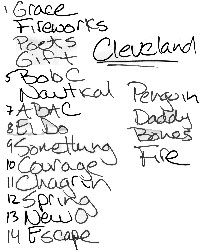 1 Grace
Fireworks
Poets
Gift
5 Bob C
Nautical
7 ABAC
8 El Do
9 Something
10 Courage
11 Chagrin
12 Spring
13 New O
14 Escape
Cleveland
Penguin
Daddy
Bones
Fire